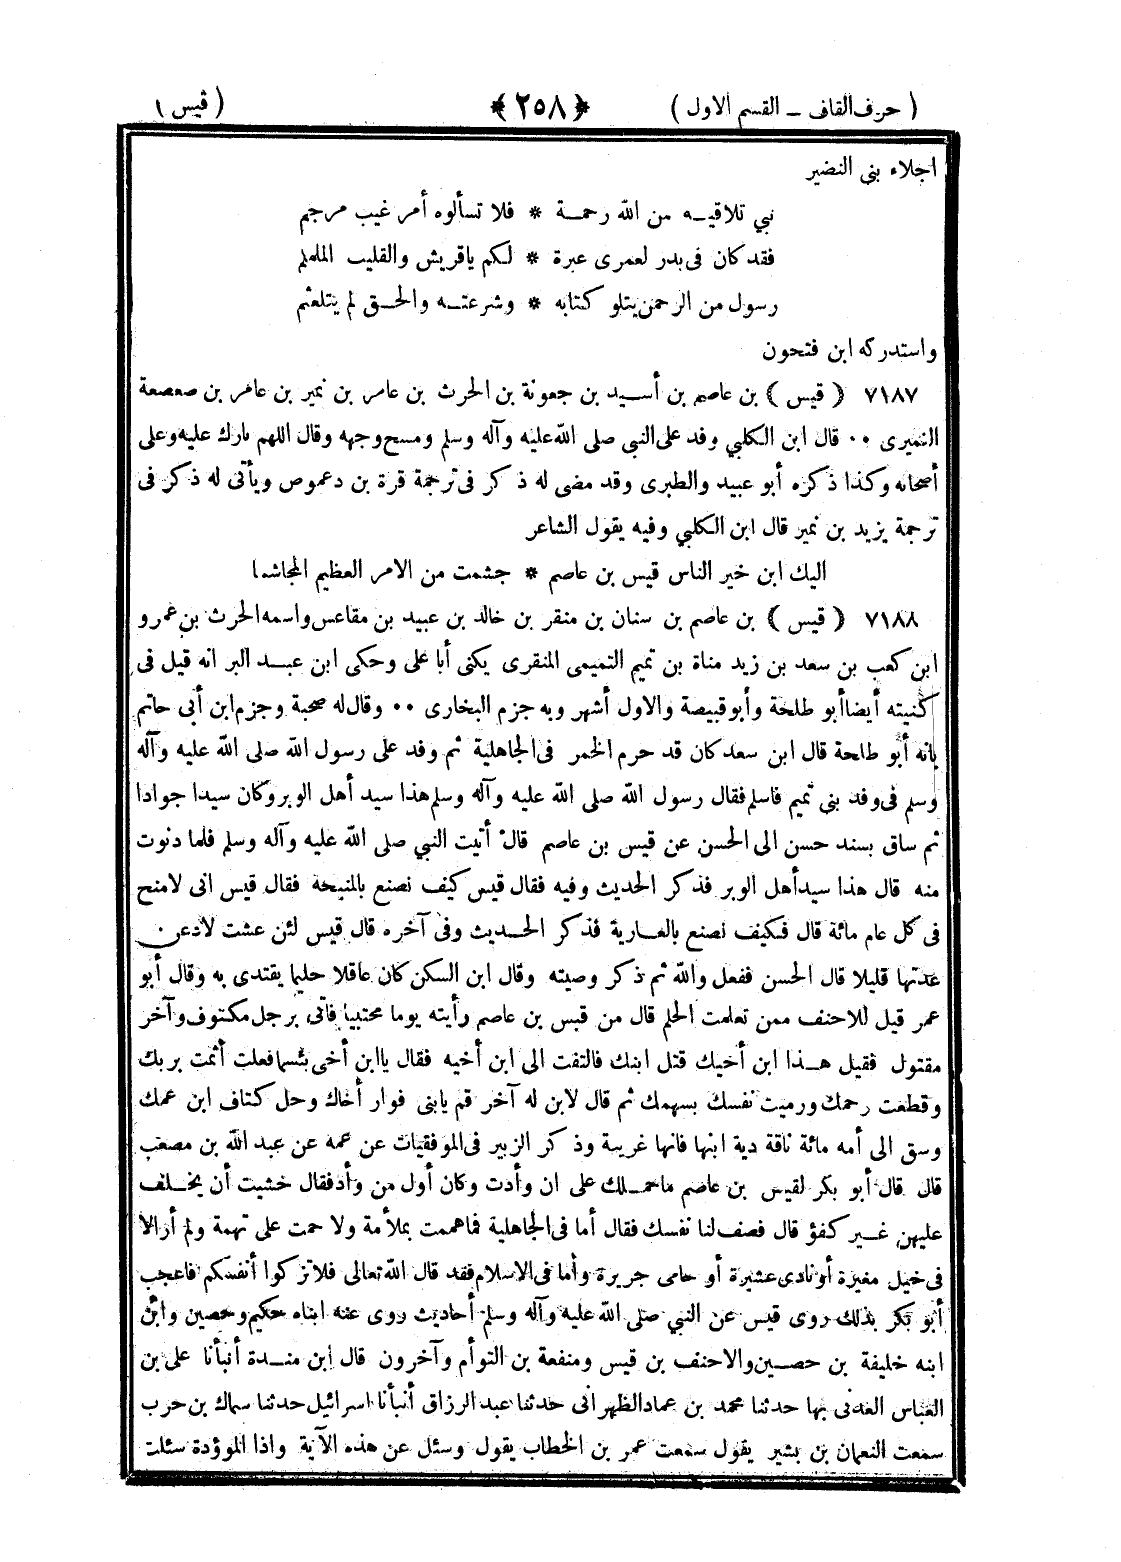 ( حرف القاف ــ القسم الاول ) ﴿ ٢٥٨ ﴾ ( قيس )
اجلاء بنى النضير
نبي تلاقيـه من الله رحمـة * فلا تسألوه أمر غيب مرجم
فقد كان فى بدر لعمرى عبرة * لكم ياقريش والقليب الململم
رسول من الرحمن يتلو كتابه * وشرعتـه والحـق لم يتلعثم
واستدركه ابن فتحون
٧١٨٧ ( قيس ) بن عاصم بن أسيد بن جعونة بن الحرث بن عامر بن نمير بن عامر بن صعصعة
النميرى ٠٠ قال ابن الكلبي وفد على النبي صلى الله عليه وآله وسلم ومسح وجهه وقال اللهم بارك عليه وعلى
أصحابه وكذا ذكره أبو عبيد والطبرى وقد مضى له ذكر فى ترجمة قرة بن دعموص ويأتى له ذكر فى
ترجمة يزيد بن نمير قال ابن الكلبي وفيه يقول الشاعر
اليك ابن خير الناس قيس بن عاصم * جشمت من الامر العظيم المجاشما
٧١٨٨ ( قيس ) بن عاصم بن سنان بن منقر بن خالد بن عبيد بن مقاعس واسمه الحرث بن عمرو
ابن كعب بن سعد بن زيد مناة بن تميم التميمى المنقرى يكنى أبا على وحكى ابن عبـد البر انه قيل فى
كنيته أيضا أبو طلحة وأبو قبيصة والاول أشهر وبه جزم البخارى ٠٠ وقال له صحبة وجزم ابن أبى حاتم
بانه أبو طلحة قال ابن سعد كان قد حرم الخمر فى الجاهلية ثم وفد على رسول الله صلى الله عليه وآله
وسلم فى وفد بنى تميم فاسلم فقال رسول الله صلى الله عليه وآله وسلم هذا سيد أهل الوبر وكان سيدا جوادا
ثم ساق بسند حسن الى الحسن عن قيس بن عاصم قال أتيت النبي صلى الله عليه وآله وسلم فلما دنوت
منه قال هذا سيد أهل الوبر فذكر الحديث وفيه فقال قيس كيف تصنع بالمنيحة فقال قيس انى لامنح
فى كل عام مائة قال فكيف تصنع بالعـارية فذكر الحـديث وفى آخره قال قيس لئن عشت لادعن
عدتها قليلا قال الحسن ففعل والله ثم ذكر وصيته وقال ابن السكن كان عاقلا حليما يقتدى به وقال أبو
عمر قيل للاحنف ممن تعلمت الحلم قال من قيس بن عاصم رأيته يوما محتبيا فاتى برجل مكتوف وآخر
مقتول فقيل هـذا ابن أخيك قتل ابنك فالتفت الى ابن أخيه فقال ياابن أخى بئسما فعلت أثمت بربك
وقطعت رحمك ورميت نفسك بسهمك ثم قال لابن له آخر قم يابنى فوار أخاك وحل كتاف ابن عمك
وسق الى أمه مائة ناقة دية ابنها فانها غريبة وذكر الزبير فى الموفقيات عن عمه عن عبد الله بن مصعب
قال قال أبو بكر لقيس بن عاصم ماحمـلك على ان وأدت وكان أول من وأد فقال خشيت أن يخـلف
عليهن غـير كفؤ قال فصف لنا نفسك فقال أما فى الجاهلية فماهممت بملأمة ولا حمت على تهمة ولم أر الا
فى خيل مغيرة أو نادى عشيرة أو حامى جريرة وأما فى الاسلام فقد قال الله تعالى فلا تزكوا أنفسكم فاعجب
أبو بكر بذلك روى قيس عن النبي صلى الله عليه وآله وسلم أحاديث روى عنه ابناه حكيم وحصين وابن
ابنه خليفة بن حصـين والاحنف بن قيس ومنفعة بن التوأم وآخرون قال ابن منـدة أنبأنا على بن
العباس العدنى بها حدثنا محمد بن عماد الظهرانى حدثنا عبد الرزاق أنبأنا اسرائيل حدثنا سماك بن حرب
سمعت النعمان بن بشير يقول سمعت عمر بن الخطاب يقول وسئل عن هذه الآية واذا الموؤدة سئلت